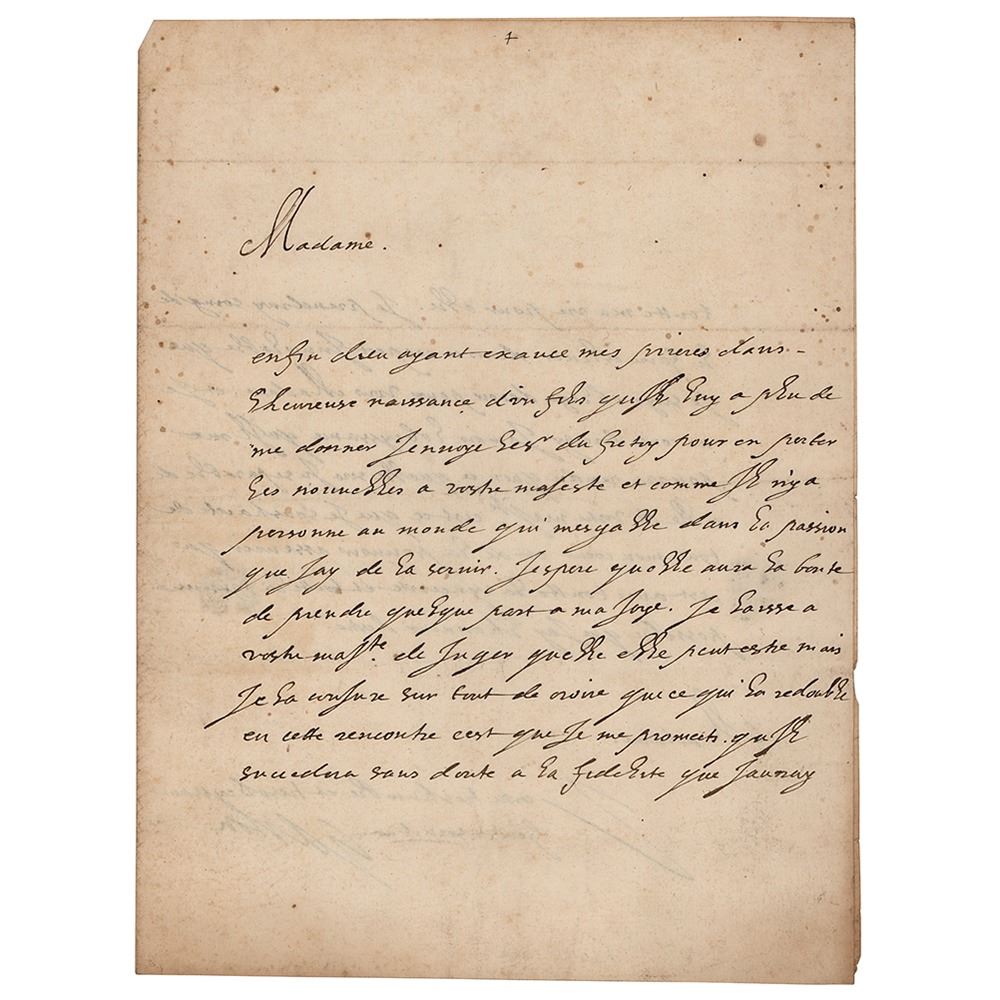 Madame.
enfin dieu ayant exauce mes prieres dans
lheureuse naissance dun fils quil luy a pleu de
me donner Jenuoye le sr du fretoy pour en porter
les nouuelles a vostre maieste et comme Il nya
personne au monde qui mesgalle dans la passion
que Jay de la seruir. Jespere quelle aura la bonte
de prendre quelque part a ma Joye. Je laisse a
vostre maj.te de Juger quelle elle peut estre mais
Je la conjure sur tout de croire que ce qui la redouble
en cette rencontre cest que Je me promets quil
succedera sans doute a la fidelite que Jauray